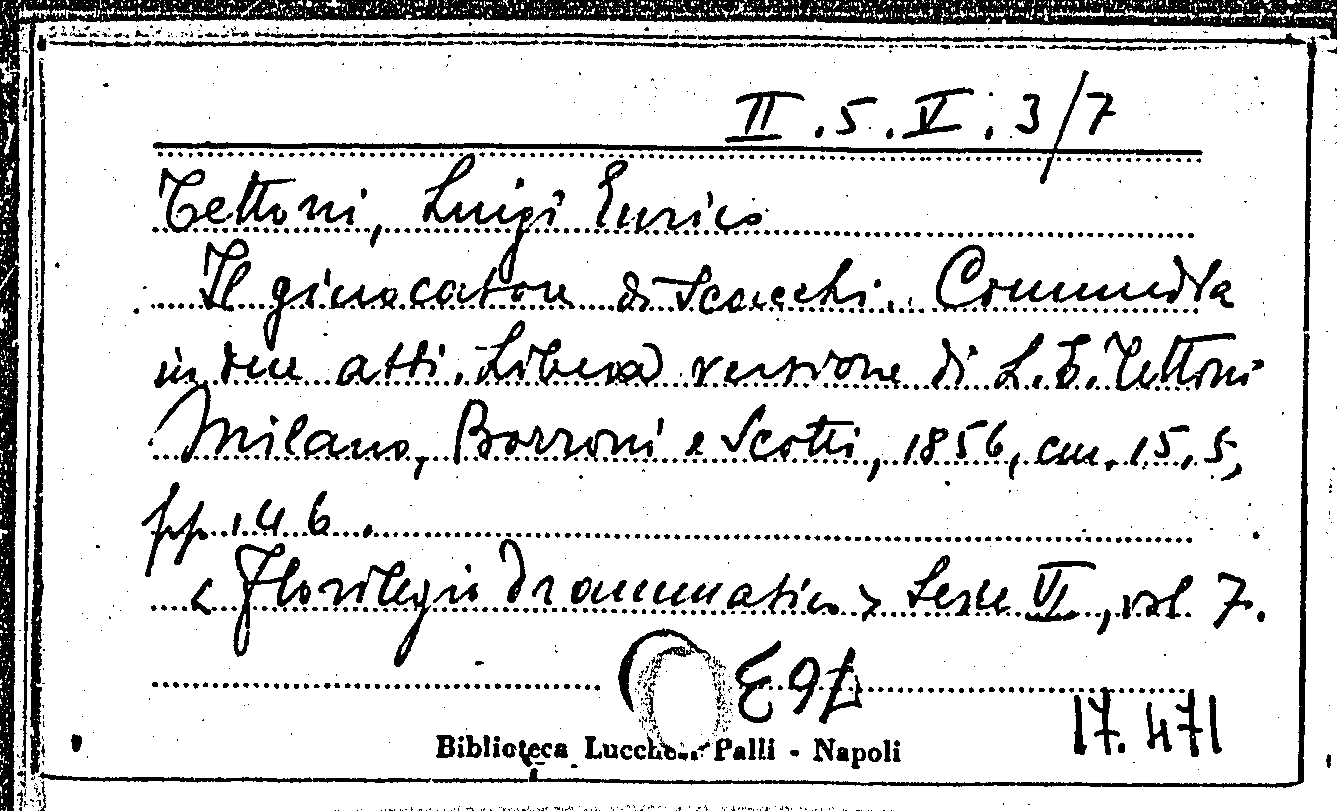 II.5.V.3/7
Tettoni, Luigi Enrico
Il giuocatore di Scacchi. Commedia
in due atti. Libera versione di L. E. Tettoni
Milano, Borroni e Scotti, 1856, cm. 15,5,
pp. 46.
<Florilegio Drammatico> Serie VI, vol 7.
Biblioteca Lucchesi Palli - Napoli
17.471